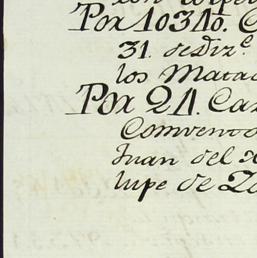 Por 1031o. C
31. de Diz.e
los Marac
Por 21. Car
Convento
Juan del
lupe de Za